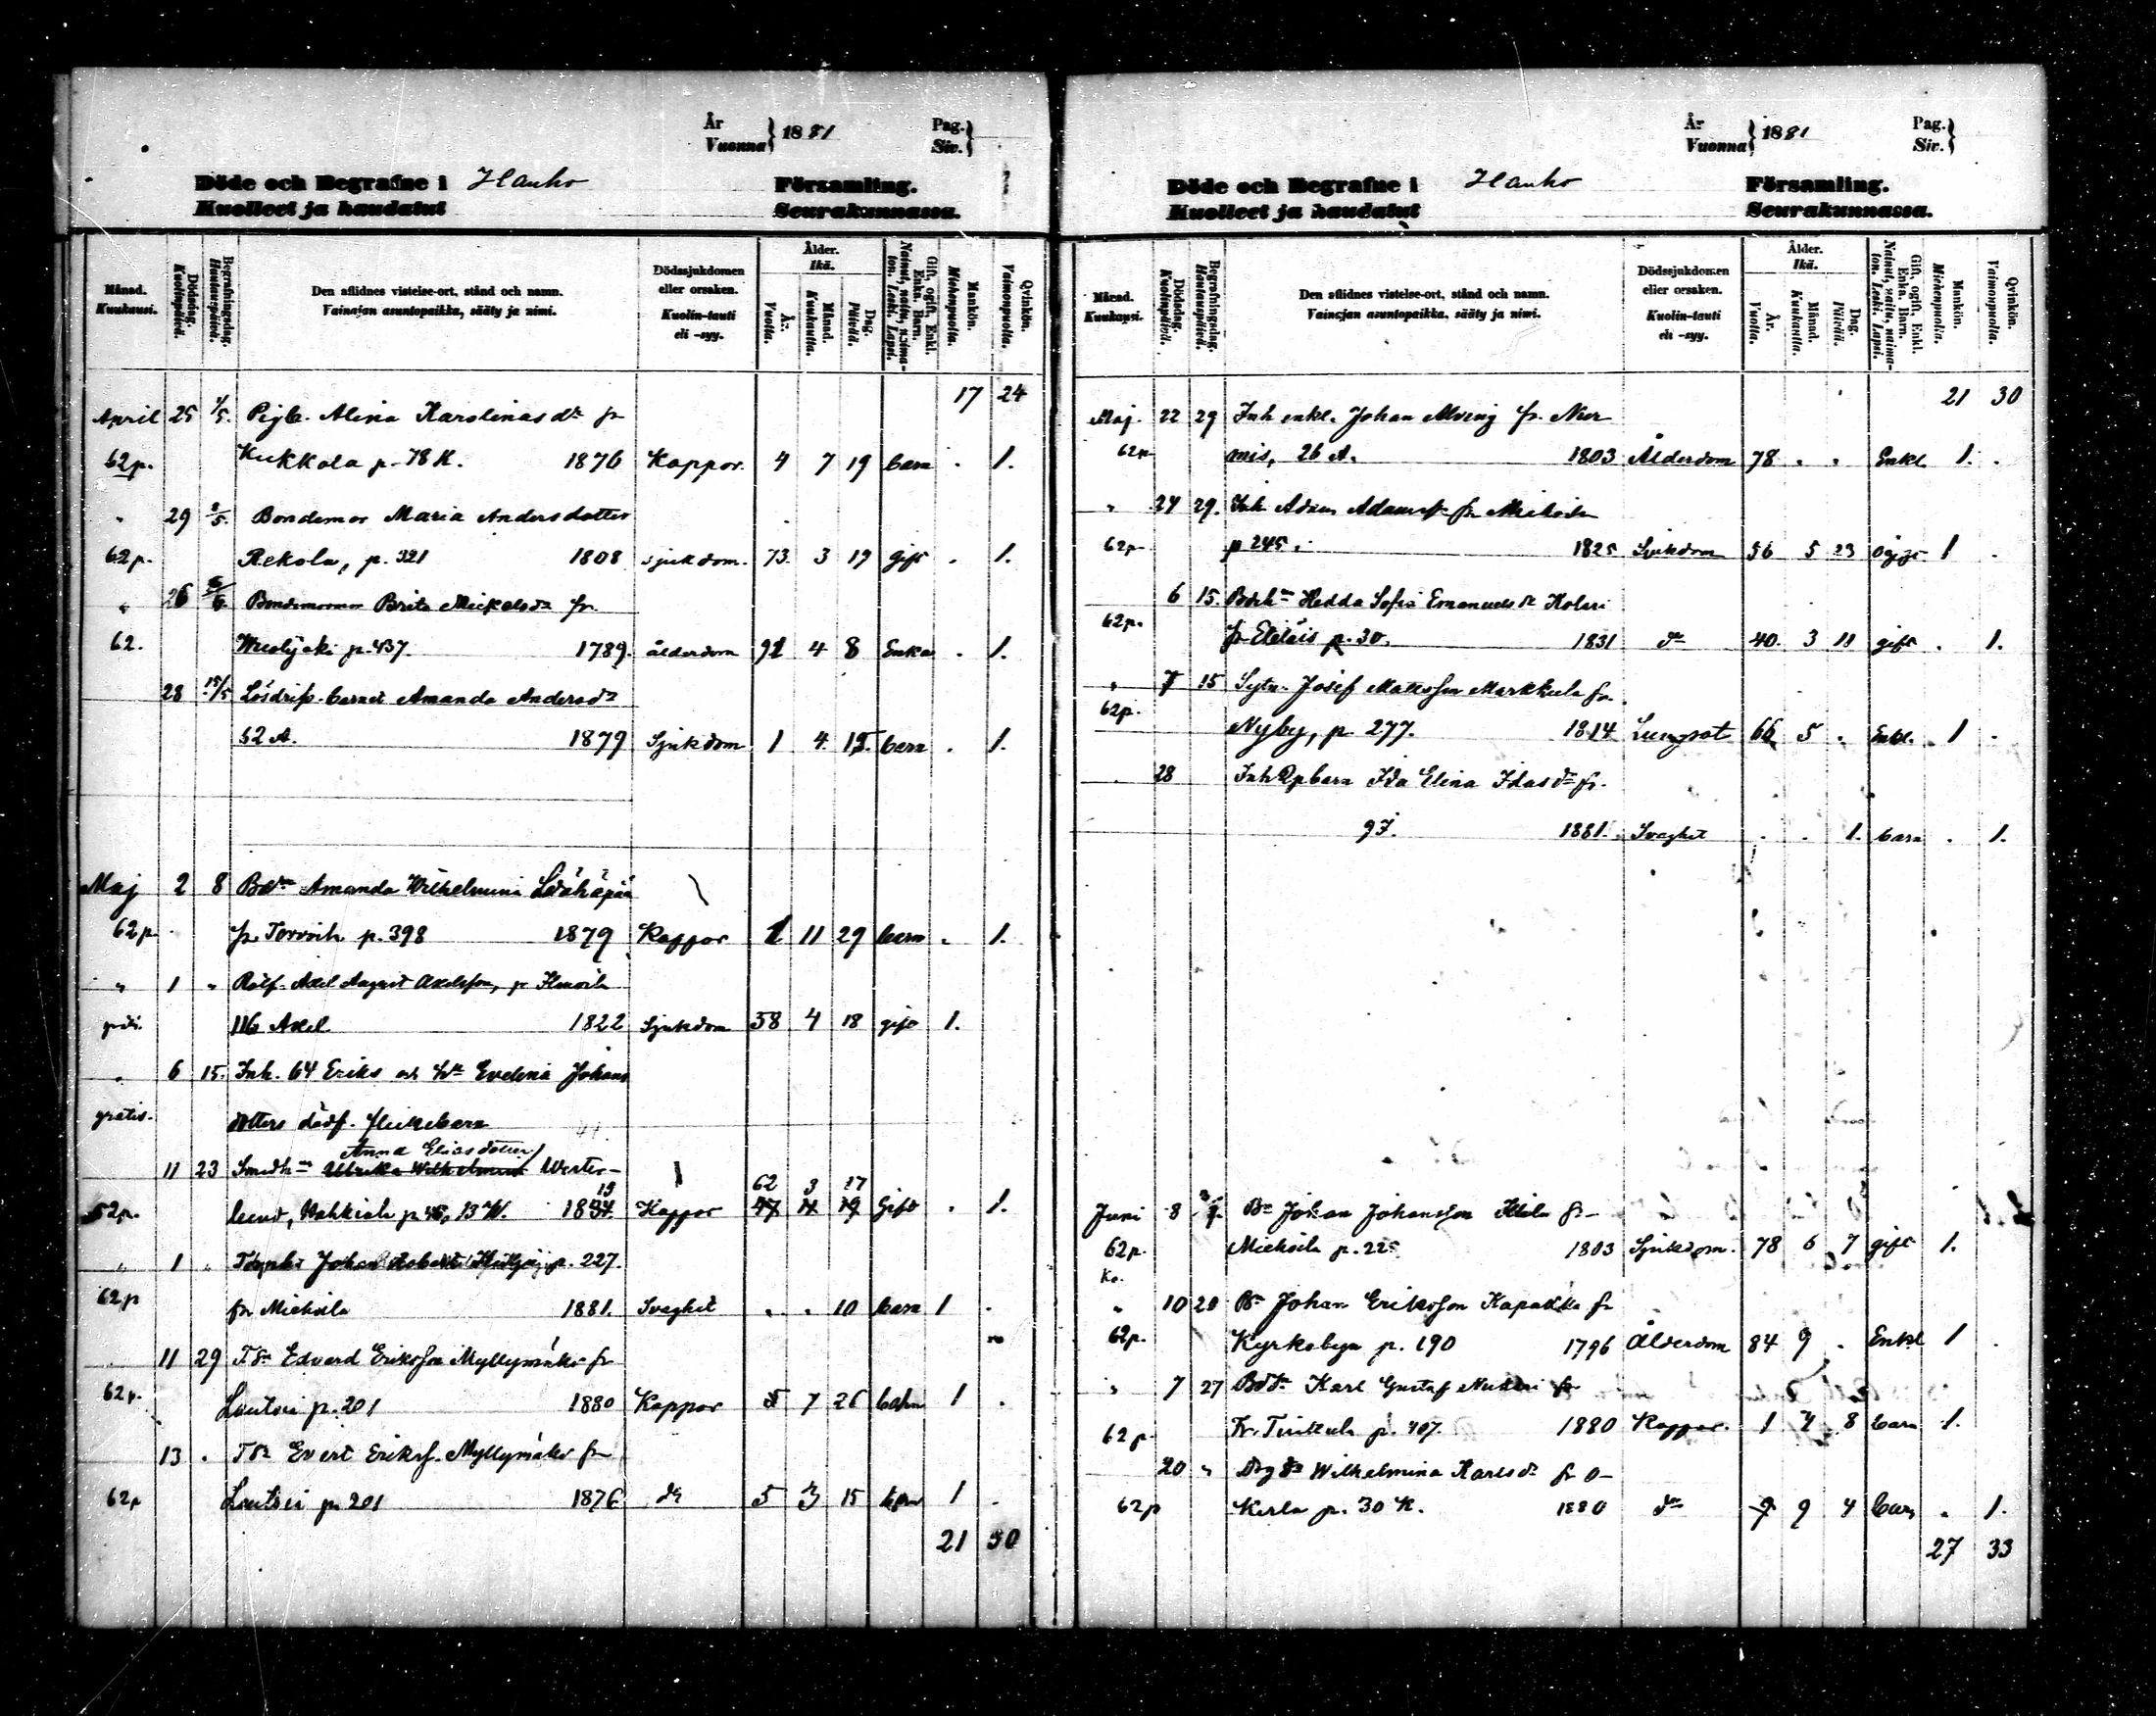 År
Vuonna } 1881
Pag.
Siv. }
Döde och Begrafne i Hauho Församling.
Kuolleet ja haudatut Seurakunnassa.
Månad. Kuukausi.
Dödsdag. Kuolinpäivä.
Begrafningsdag. Hautauspäivä.
Den aflidnes vistelse-ort, stånd och namn.
Vainajan asuntopaikka, sääty ja nimi.
Dödssjukdomen eller orsaken.
Kuolin-tauti eli -syy.
Ålder. Ikä.
År. Vuotta.
Månad. Kuukautta.
Dag. Päivää.
Gift, ogift, Enkl. Enka. Barn.
Nainut, naitu, naimaton. Leski. Lapsi.
Mankön. Miehenpuolta.
Qvinkön. Vaimonpuolta.
17 24
April 25 1/5. Pigb. Alina Karolinasdr fr
62p. Kukkola p. 78 K. 1876 Koppor. 4 7 19 barn . 1.
" 29 8/5. Bondemor Maria Andersdotter
62p. Rekola, p. 321 1808 sjukdom. 73. 3 19 gift . 1.
" 26 Bondemormor Brita Mickelsdr fr.
62. p. 437. 1789. ålderdom 91 4 8 Enka . 1.
28 15/5 Lösdrifs. barnet Amanda Andersdr
62 A. 1879 Sjukdom 1 4 15. barn . 1.
Maj 2 8 Bdr Amanda Wilhelmina
62p. fr. p. 398 1879 Koppor 1 11 29 barn . 1.
" 1 " Axel August Axelsson, fr
116 Axel 1822 Sjukdom 58 4 18 gift 1.
" 6 15. Inh. 64 Eriks och hr Evelina Johans
gratis. dotters dödf. flickebarn
Anna Eliasdotter
11 23 Smedh Ulrika Wilhelmina Wester-
62 3 17
19
62p. lund, p. 45, 13 W. 1834. Koppor 47 4 19 Gift . 1.
" 1 " Johan Robert p. 227.
62p fr Miehoila 1881. Svaghet . . 10 barn 1 .
" 11 29 Tdr Edvard Eriksson Myllymäki fr
62p. Lautsia p. 201 1880 Koppor 5 7 26 barn 1 .
13 . Tdr Evert Eriksf. Myllymäki fr
62p Lautsia p. 201 1876 do 5 3 15 barn 1 .
21 30
År
Vuonna } 1881
Pag.
Siv. }
Döde och Begrafne i Hauho Församling.
Kuolleet ja haudatut Seurakunnassa.
Månad. Kuukausi.
Dödsdag. Kuolinpäivä.
Begrafningsdag. Hautauspäivä.
Den aflidnes vistelse-ort, stånd och namn.
Vainajan asuntopaikka, sääty ja nimi.
Dödssjukdomen eller orsaken.
Kuolin-tauti eli -syy.
Ålder. Ikä.
År. Vuotta.
Månad. Kuukautta.
Dag. Päivää.
Gift, ogift, Enkl. Enka. Barn.
Nainut, naitu, naimaton. Leski. Lapsi.
Mankön. Miehenpuolta.
Qvinkön. Vaimonpuolta.
21 30
Maj. 22 29 Inh enkl. Johan Alving fr. Nur
62p mis, 26 A. 1803 Ålderdom 78 . . Enkl 1. .
" 24 29. Inh Adam Adamsf. fr Miehoila
62p. p 245. 1825 Sjukdom 56 5 23 ogift 1 .
6 15. Hedda Sofia Emanuelsdr Kolari
62p. fr Eteläis p. 30. 1831 do 40. 3 11 gift . 1.
" 7 15 Sytn. Josef Matsson Markkula fr.
62p. Nyby, p. 277. 1814 Lungsot 66 5 . Enkl. 1 .
. 28 Inh barn Ida Elina Idasdr fr.
9 I. 1881. Svaghet . . 1. barn . 1.
Juni 8 Bn Johan Johansson fr
62p. Miehoila p. 225 1803 Sjukdom. 78 6 7 gift 1.
Ko.
" 10 20 Johan Eriksson Kapakka fr
62p. Kyrkobyn p. 190 1796 Ålderdom 84 9 . Enkl 1 .
" 7 27 Bdr Karl Gustaf fr
62p. fr. p. 407. 1880 Koppor. 1 4 8 barn 1.
20 " Wilhelmina Karlsdr fr o-
62p Kerla p. 30 K. 1880 do 9 4 barn . 1.
27 33